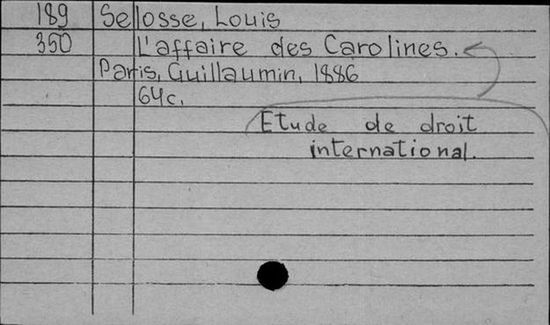 189 Selosse, Louis
350 L'affaire des Carolines.
Paris, Guillaumin, 1886
64c.
Etude de droit
international.